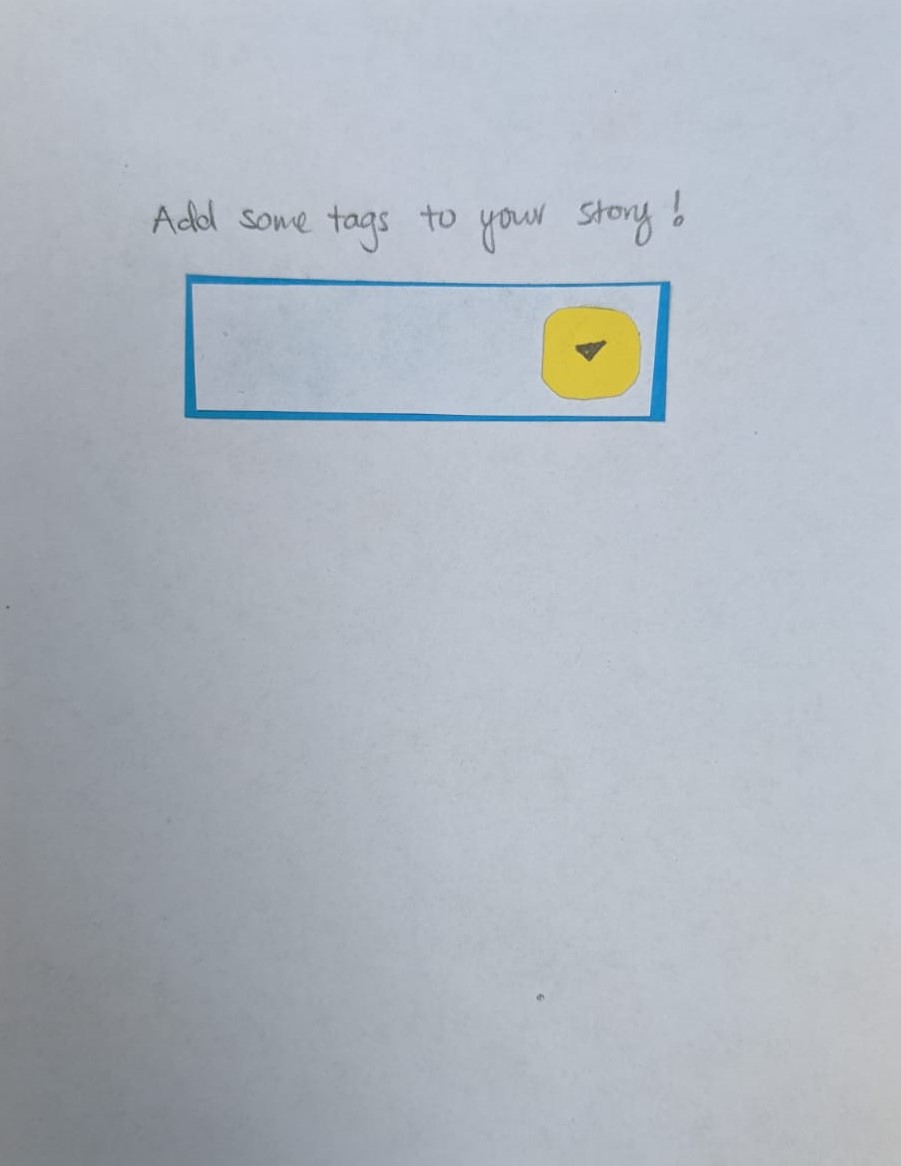 Add some tags to your story!